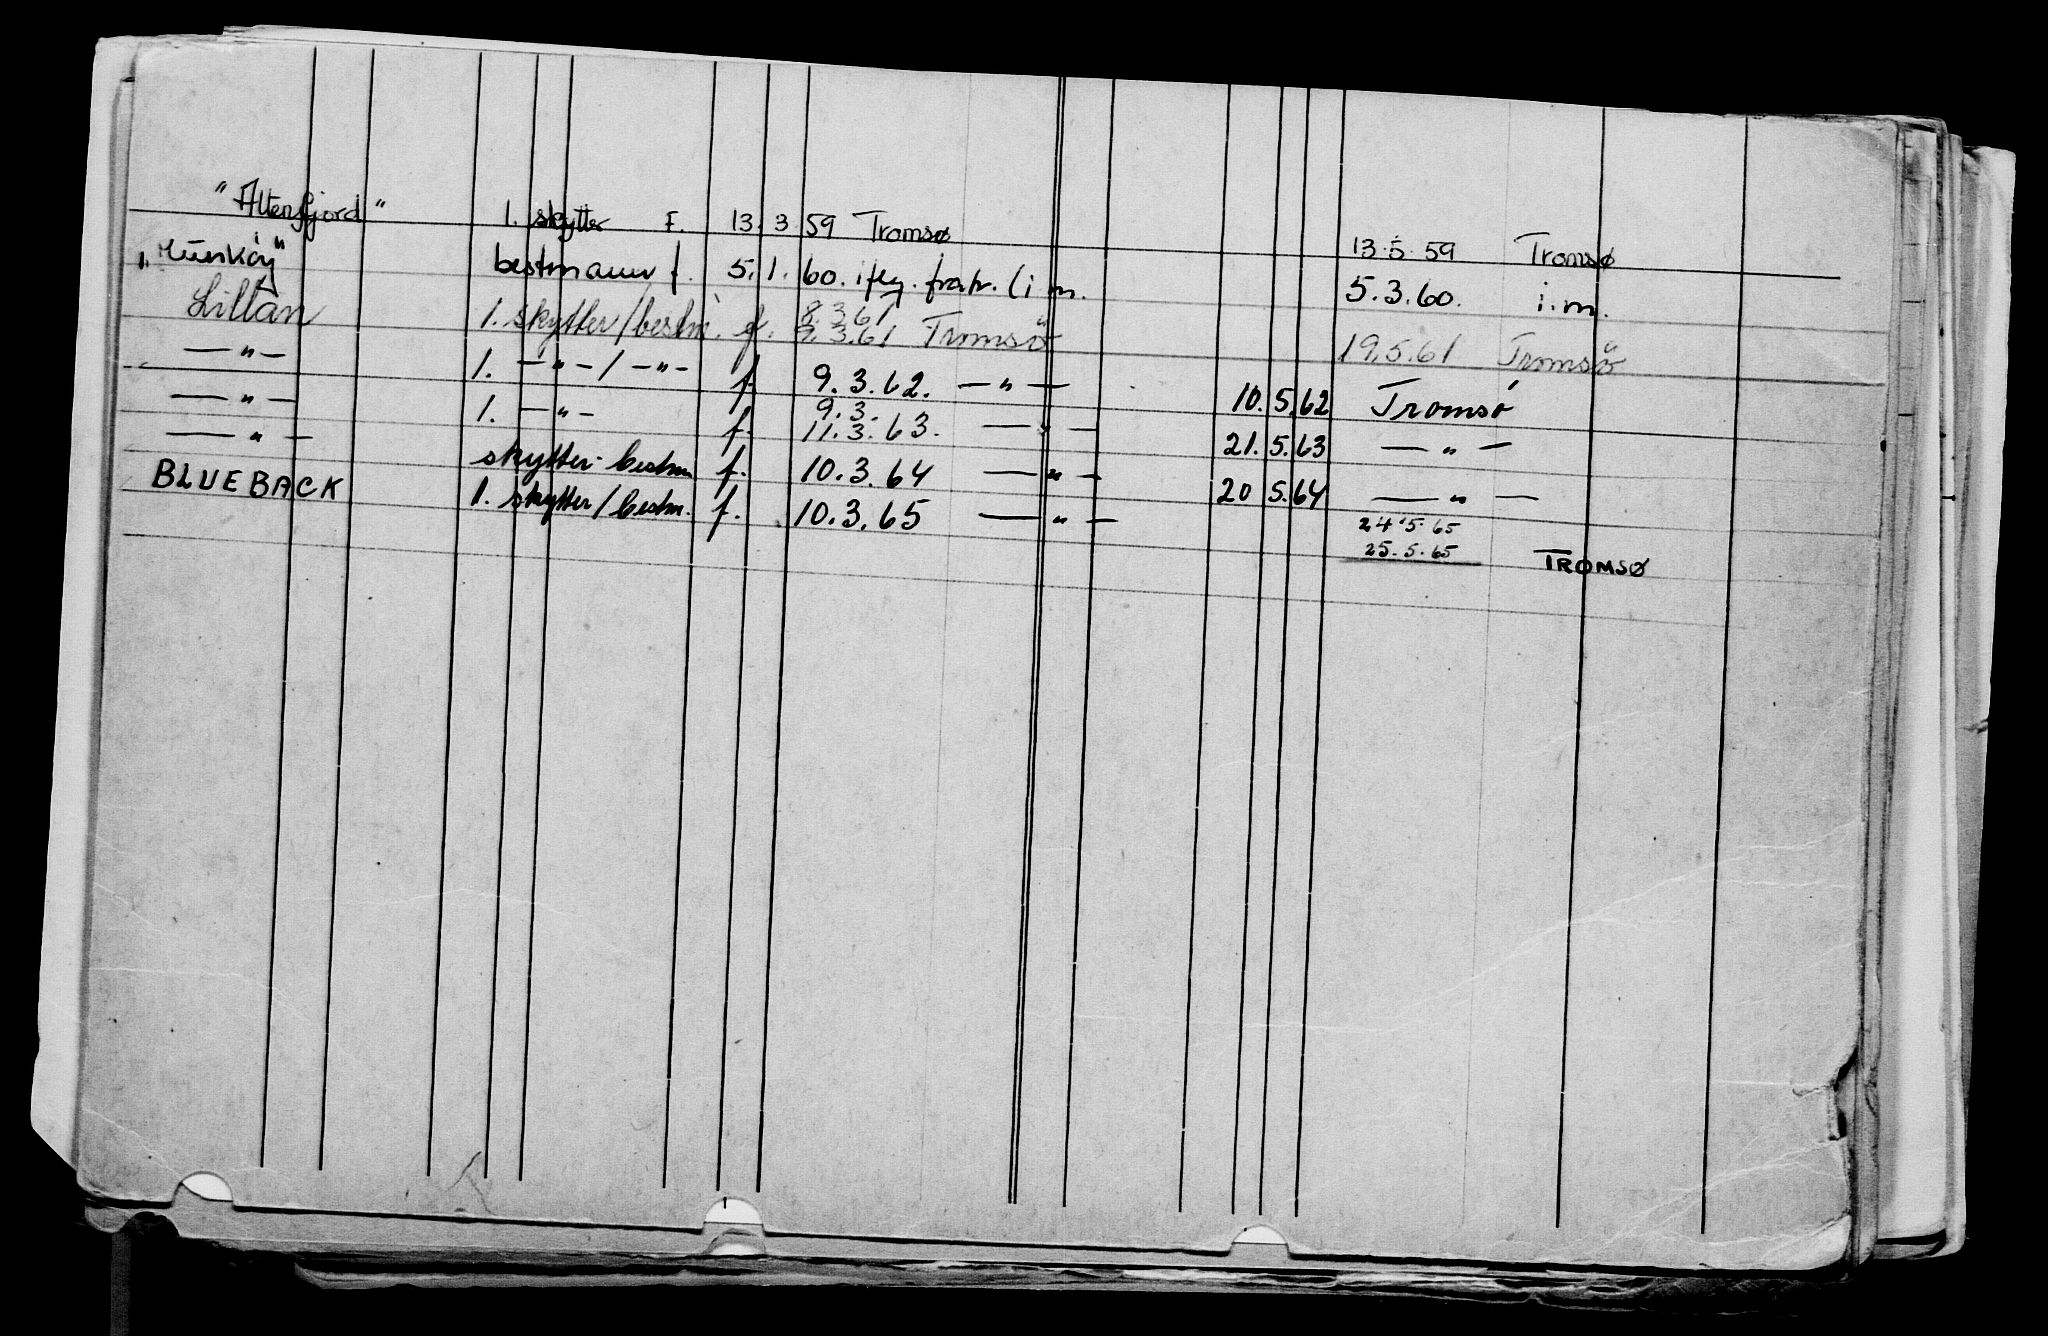 "Altenfjord" 1. skytter F. 13. 3. 59 Tromsø 13.5.59 Tromsø
bestmann f. 5. 1. 60. iflg. fratr. (i.m. 5.3.60. i.m.
Lillan 1. skytter/bestm. f. 8.3.61 9.3.61 Tromsö 19.5.61 Tromsö
— " — 1. — " — / — " — f. 9. 3. 62. — " — 10. 5. 62 Tromsø
— " — 1. — " — f. 9.3. 11.3.63. — " — 21. 5. 63 — " —
— " — skytter-bestm f. 10.3.64 — " — 20 5. 64 — " —
BLUEBACK 1. skytter/bestm. f. 10.3.65 — " — 24.5.65
25.5.65 TROMSØ